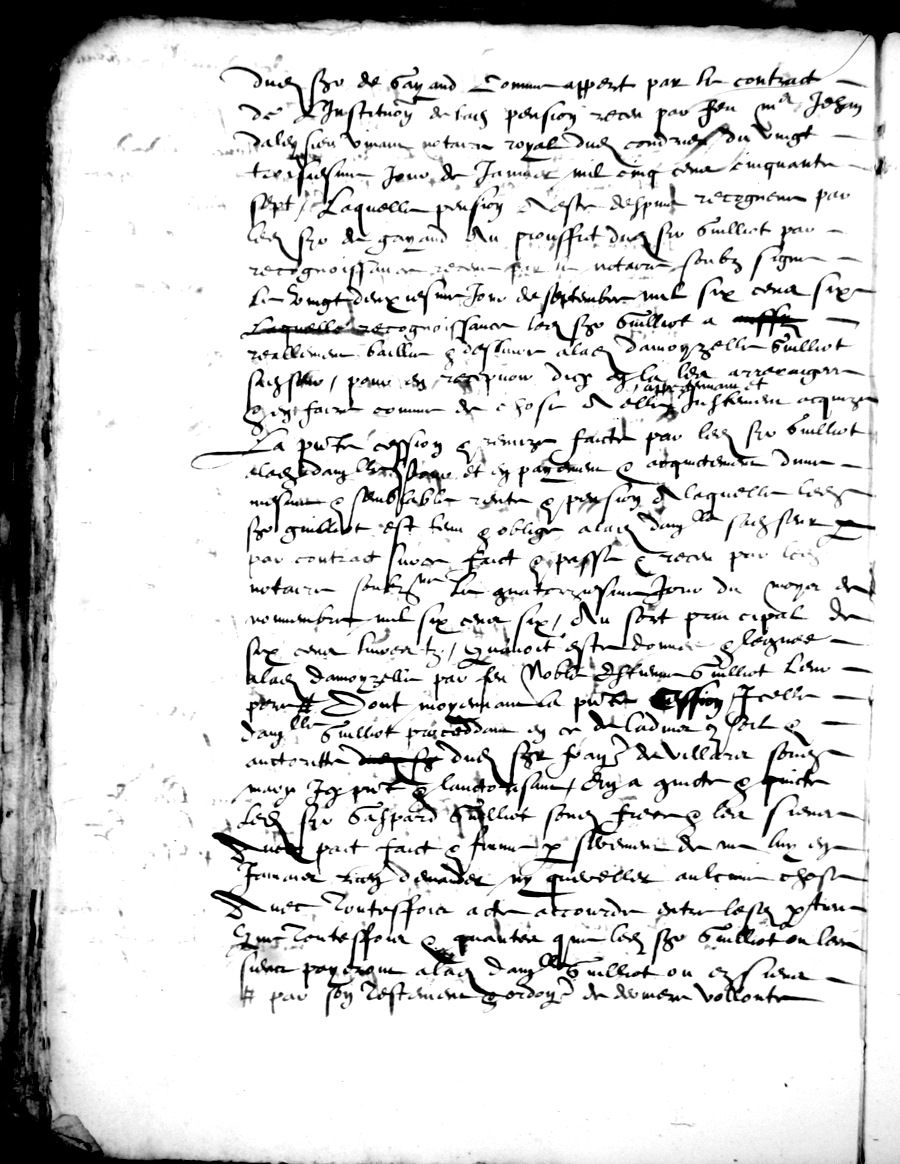 dud sgr de Gayand Comme appert par le contract
de L'Institution de lad pension receu par feu me Jehan
notaire royal dud condrieu du vingt
troisiesme Jour de Janvier mil cinq cens cinquante
sept / Laquelle pension A este despuis recogneue par
led sgr de gayand Au prouffit dud sgr Guilliot par
recognoissance receue par le notaire soubz signe
Le Vingt deuxiesme Jour de septembre mil six cens six
Laquelle recognoissance led sgr Guilliot a
reallement baillee & deslivree a lad damoyzelle Guilliot
sad seur / pour en recepvoir dicy en la les arreraiges
& en faire comme de chose A elle appertenant et Justement acquize
La pnte cession & remize faicte par led sgr Guilliot
a lad damlle sa seur et en payement & acquictement dune
mesme & semblable rente & pension A laquelle led
sgr guilliot est tenu & oblige a lad damlle sad seur
par contract sur ce faict & passe & receu par led
notaire soubzsne Le quatorziesme Jour du moys de
novembre mil six cens six / Au sort principal de
six cens livres tz / Quavoit este donnee & leguee
a lad damoyzelle par feu Noble Estienne Guilliot Leur
pere # Dont moyennant la pnte Cession Icelle
damlle Guilliot proceddant en ce de ladvis conseil &
auctorite dud sgr francs de Villars sond
mary Icy pnt & lauctorisant / En a quicte & quicte
led sgr Gaspard Guilliot sond frere & les siens
Avec pact faict & ferme de ne luy en
Jamais rien demander ny quereller aulcune chose
Avec Touteffois acte accourde entre lesd parties
Que Touteffois & quantes que led sgr Guilliot ou les
siens payeront a lad damlle Guilliot ou es siens
# par son Testement & ordonce de derniere vollonte